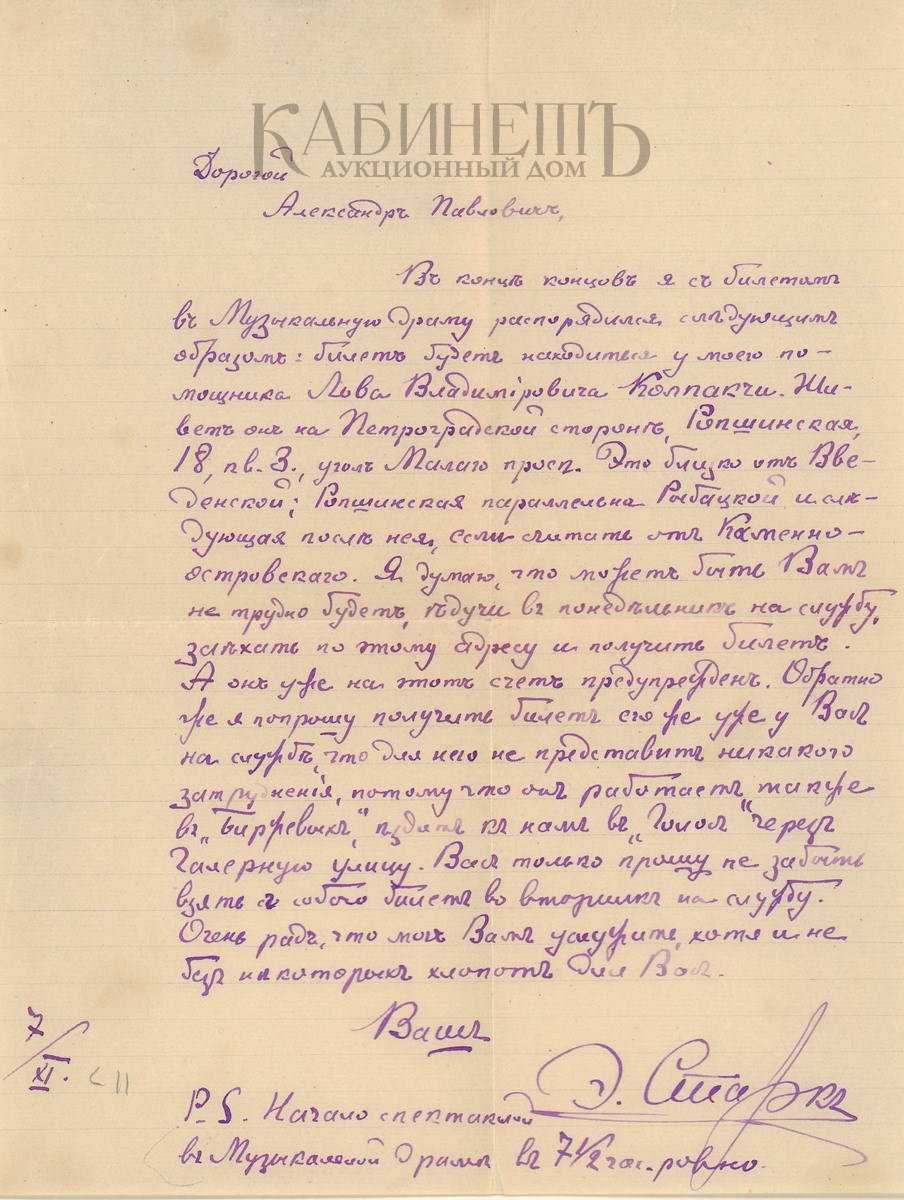 КАБИНЕТЪ
АУКЦИОННЫЙ ДОМ
Дорогой
Александръ Павловичъ,
Въ концѣ концовъ я съ билетомъ
въ Музыкальную Драму распорядился слѣдующимъ
образомъ: билетъ будетъ находиться у моего по-
мощника Льва Владимiровича Колпакчи. Жи-
ветъ онъ на Петроградской сторонѣ, Ропшинская,
18, кв. 3., уголъ Малаго просп. Это близко отъ Вве-
денской; Ропшинская параллельна Рыбацкой и слѣ-
дующая послѣ нея, если считать отъ Каменно-
островскаго. Я думаю, что можетъ быть Вамъ
не трудно будетъ, ѣдучи въ понедѣльникъ на службу,
заѣхать по этому адресу и получить билетъ.
А онъ уже на этотъ счетъ предупрежденъ. Обратно
же я попрошу получить билетъ его же уже у Васъ
на службѣ, что для него не представитъ никакого
затрудненiя, потому что онъ работаетъ также
въ „Биржевыхъ", къ намъ въ „Голосъ" черезъ
Галерную улицу. Васъ только прошу не забыть
взять съ собою билетъ во вторникъ на службу.
Очень радъ, что могъ Вамъ услужить, хотя и не
безъ нѣкоторыхъ хлопотъ для Васъ.
Вашъ
Э. Старкъ
7/XI.
P. S. Начало спектаклей
въ Музыкальной Драмѣ въ 7 1/2 час. ровно.